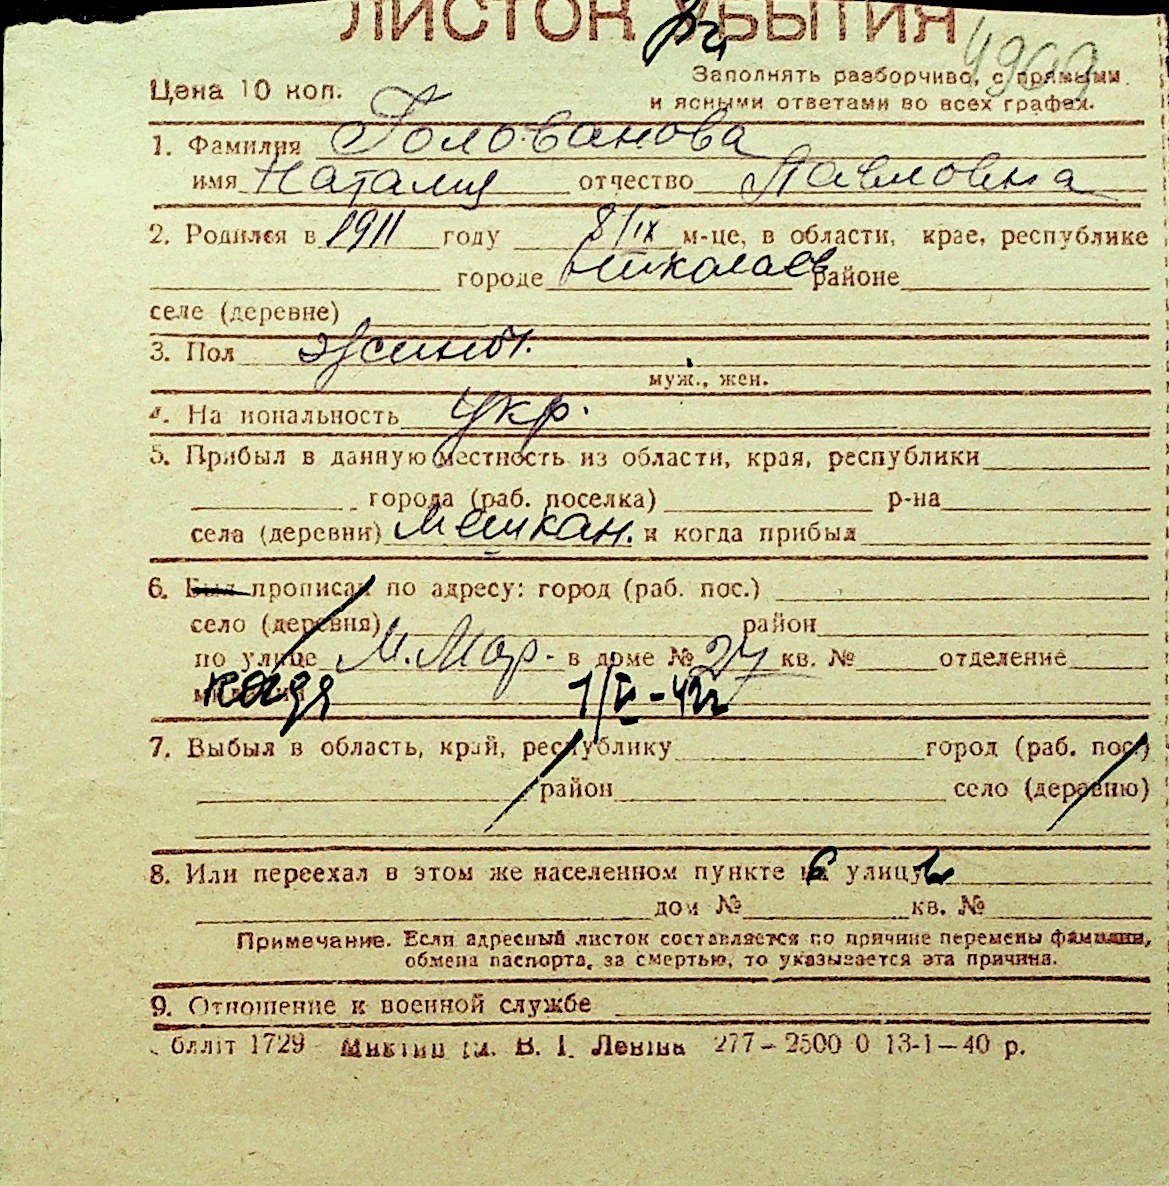 ЛИСТОК УБЫТИЯ
4969
Цена 10 коп.
Заполнять разборчиво, с прямыми
и ясными ответами во всех графах.
1. Фамилия Голованова
имя Наталия отчество Павловна
2. Родился в 1911 году 8/IX м-це, в области, крае, республике
городе Николаев районе
селе (деревне)
3. Пол женск.
муж., жен.
4. Национальность укр.
5. Прибыл в данную местность из области, края, республики
города (раб. поселка) р-на
села (деревни) мешкан. и когда прибыл
6. Был прописан по адресу: город (раб. пос.)
село (деревня) район
по улице М. Мор. в доме № 27 кв. № отделение
милиции
7. Выбыл в область, край, республику город (раб. пос.)
район село (деревню)
8. Или переехал в этом же населенном пункте на улицу
дом № кв. №
Примечание. Если адресный листок составляется по причине перемены фамилии,
обмена паспорта, за смертью, то указывается эта причина.
9. Отношение к военной службе
бліт 1729 Миколаїв ім. В. І. Леніна 277–2500 0 13-1–40 р.